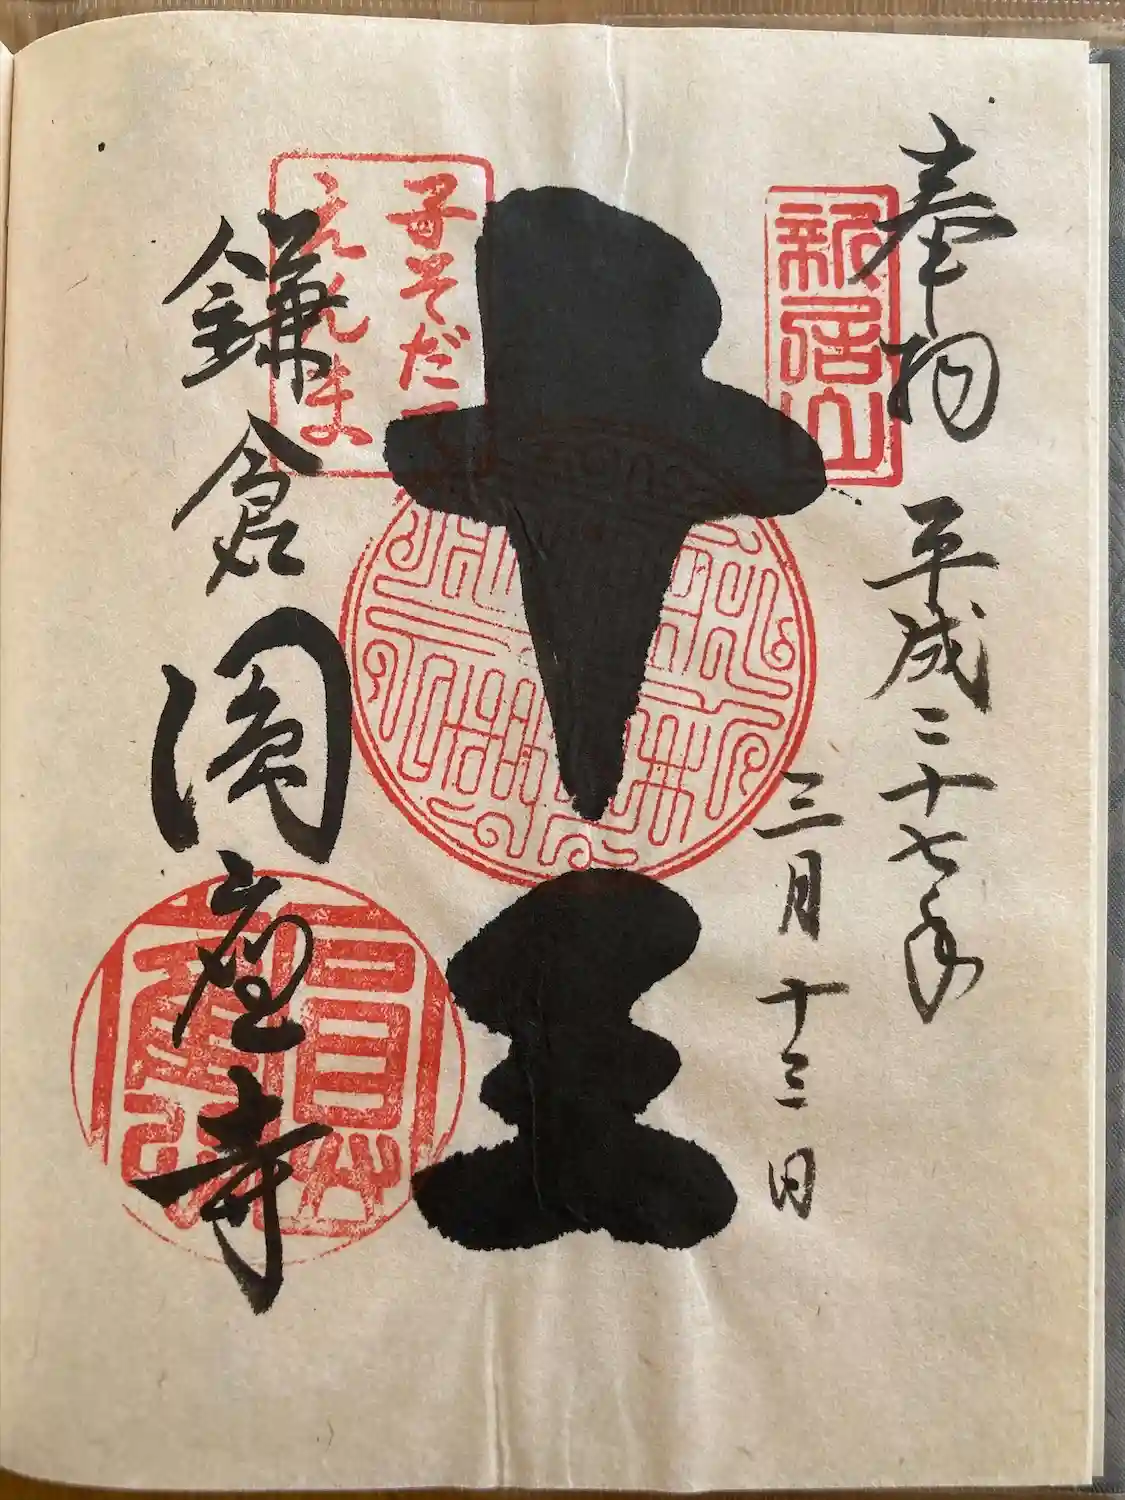 奉拝
平成二十七年
三月十三日
新居山
十王
子そだて
えんま
鎌倉
圓應寺